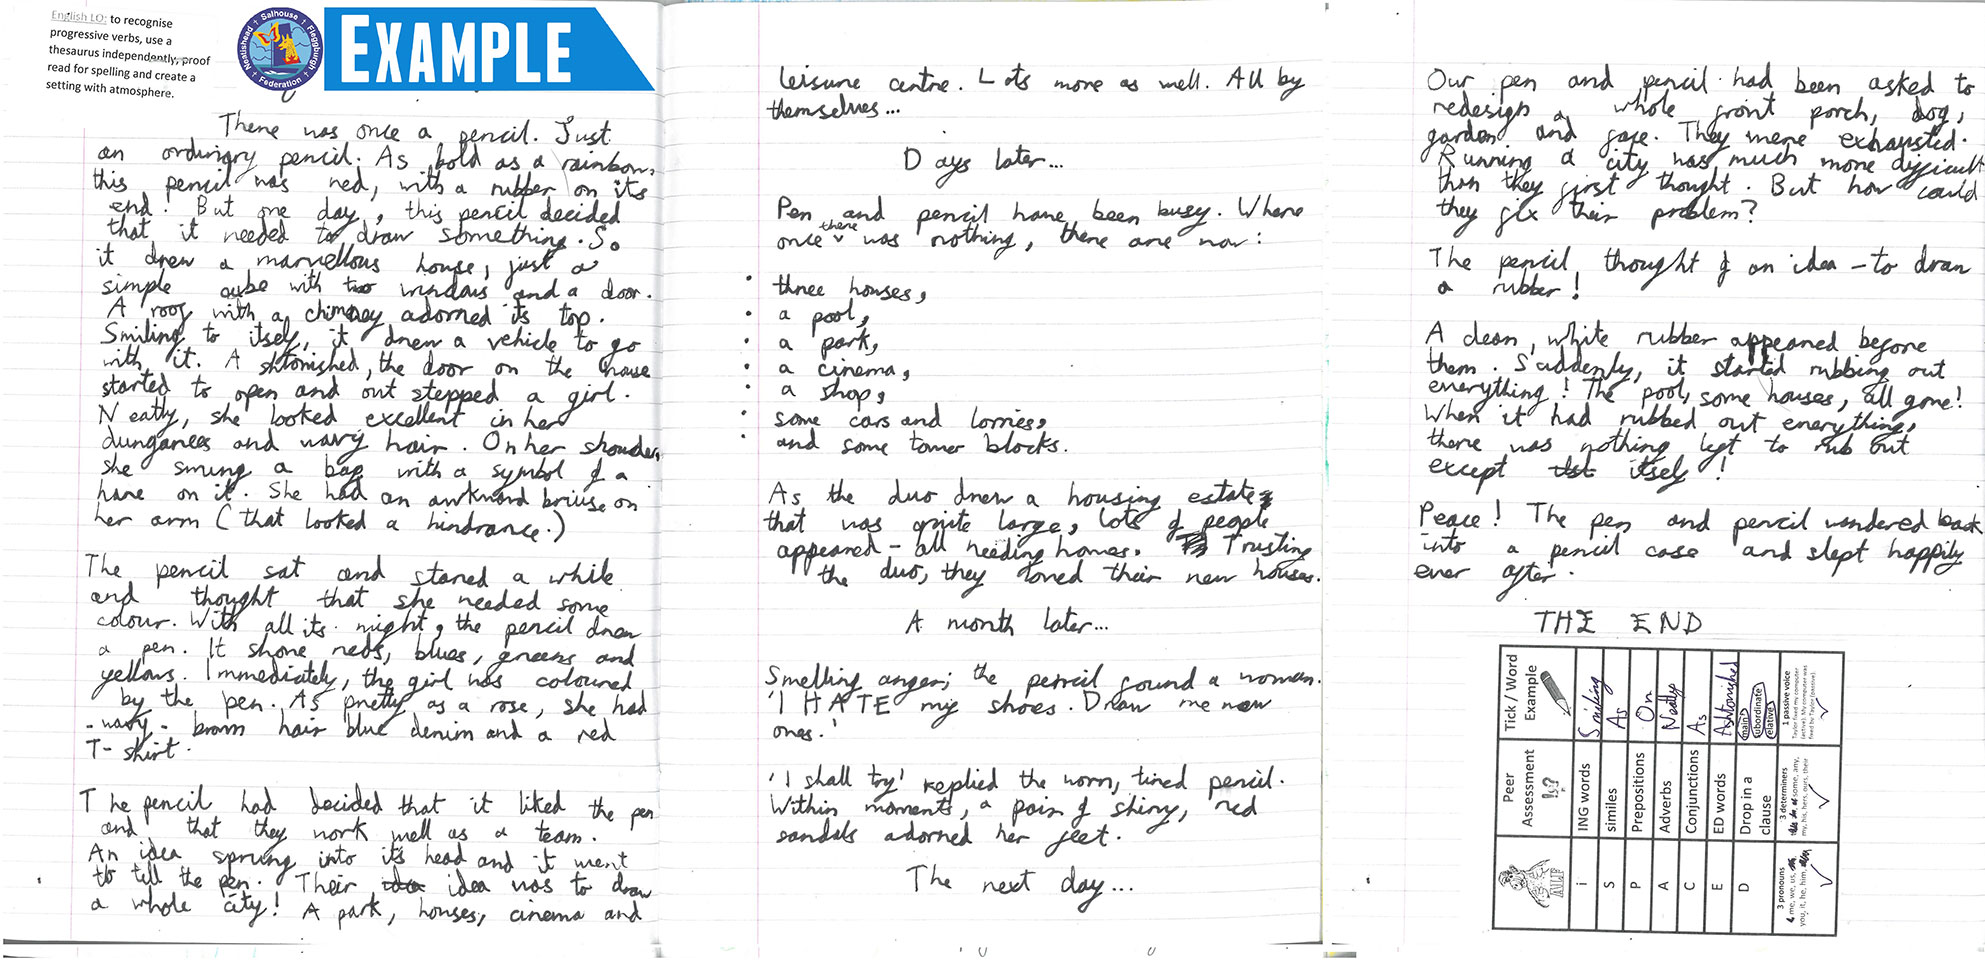 English LO: to recognise
progressive verbs, use a
thesaurus independently, proof
read for spelling and create a
setting with atmosphere.
Salhouse Fleggburgh Neatishead
Federation
EXAMPLE
There was once a pencil. Just
an ordinary pencil. As bold as a rainbow,
this pencil was red, with a rubber on its
end. But one day, this pencil decided
that it needed to draw something. So
it drew a marvellous house, just a
simple cube with two windows and a door.
A roof with a chimney adorned its top.
Smiling to itself, it drew a vehicle to go
with it. Ashtonished, the door on the house
started to open and out stepped a girl.
Neatly, she looked excellent in her
dungarees and wavy hair. On her shoulder,
she swung a bag with a symbol of a
hare on it. She had an awkward briuse on
her arm (that looked a hindrance.)
The pencil sat and stared a while
and thought that she needed some
colour. With all its might, the pencil drew
a pen. It shone reds, blues, greens and
yellows. Immediately, the girl was coloured
by the pen. As pretty as a rose, she had
-wavy- brown hair blue denim and a red
T-shirt.
The pencil had decided that it liked the pen
and that they work well as a team.
An idea sprung into its head and it went
to tell the pen. Their idea idea was to draw
a whole city! A park, houses, cinema and
leisure centre. Lots more as well. All by
themselves...
Days later...
Pen and pencil have been busy. Where
once there was nothing, there are now:
• three houses,
• a pool,
• a park,
• a cinema,
• a shop,
• some cars and lorries,
• and some tower blocks.
As the duo drew a housing estate
that was quite large, lots of people
appeared - all needing homes. Trusting
the duo, they loned their new houses.
A month later...
Smelling anger; the pencil found a woman.
'I HATE my shoes. Draw me new
ones.'
'I shall try' replied the worn, tired pencil.
Within moments, a pair of shiny, red
sandals adorned her feet.
The next day...
Our pen and pencil had been asked to
redesign a whole front porch, dog,
garden and face. They were exhausted.
Running a city was much more difficult
than they first thought. But how could
they fix their problem?
The pencil thought of an idea - to draw
a rubber!
A clean, white rubber appeared before
them. Suddenly, it started rubbing out
everything! The pool, some houses, all gone!
When it had rubbed out everything,
there was nothing left to rub out
except itself!
Peace! The pen and pencil wandered back
into a pencil case and slept happily
ever after.
THE END
Peer Assessment Tick / Word Example
i ING words Smiling
S similes As
P Prepositions On
A Adverbs Neatly
C Conjunctions As
E ED words Ashtonished
D Drop in a clause main subordinate relative
3 pronouns
me, we, us,
you, it, he, him,
3 determiners
some, any,
my, his, hers, ours, their
1 passive voice
Taylor fixed my computer
(active). My computer was
fixed by Taylor (passive).